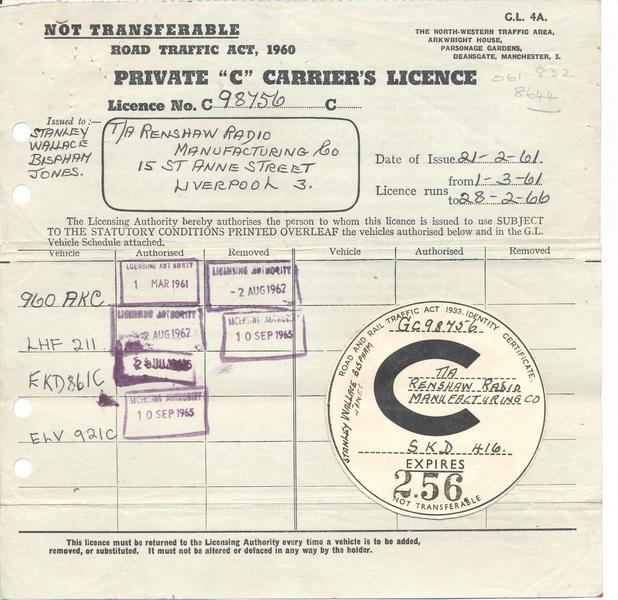 NOT TRANSFERABLE
ROAD TRAFFIC ACT, 1960
G.L. 4A.
THE NORTH-WESTERN TRAFFIC AREA,
ARKWRIGHT HOUSE,
PARSONAGE GARDENS,
DEANSGATE, MANCHESTER, 3.
PRIVATE "C" CARRIER'S LICENCE
061 832
8644
Licence No. C 98756 C
Issued to :—
STANLEY
WALLACE
BISPHAM
JONES.
T/A RENSHAW RADIO
MANUFACTURING Co
15 ST ANNE STREET
LIVERPOOL 3.
Date of Issue 21-2-61.
Licence runs
from 1-3-61
to 28-2-66
The Licensing Authority hereby authorises the person to whom this licence is issued to use SUBJECT
TO THE STATUTORY CONDITIONS PRINTED OVERLEAF the vehicles authorised below and in the G.L.
Vehicle Schedule attached.
Vehicle Authorised Removed Vehicle Authorised Removed
LICENSING AUTHORITY
1 MAR 1961
LICENSING AUTHORITY
-2 AUG 1962
960 AKC
LICENSING AUTHORITY
-2 AUG 1962
LICENSING AUTHORITY
10 SEP 1965
LHF 211
EKD 861C
LICENSING AUTHORITY
10 SEP 1965
ELV 921C
ROAD AND RAIL TRAFFIC ACT 1933-IDENTITY CERTIFICATE
GC98756
STANLEY WALLACE BISPHAM
JONES
C
T/A
RENSHAW RADIO
MANUFACTURING CO
SKD 416.
EXPIRES
2.56.
NOT TRANSFERABLE
This licence must be returned to the Licensing Authority every time a vehicle is to be added,
removed, or substituted. It must not be altered or defaced in any way by the holder.